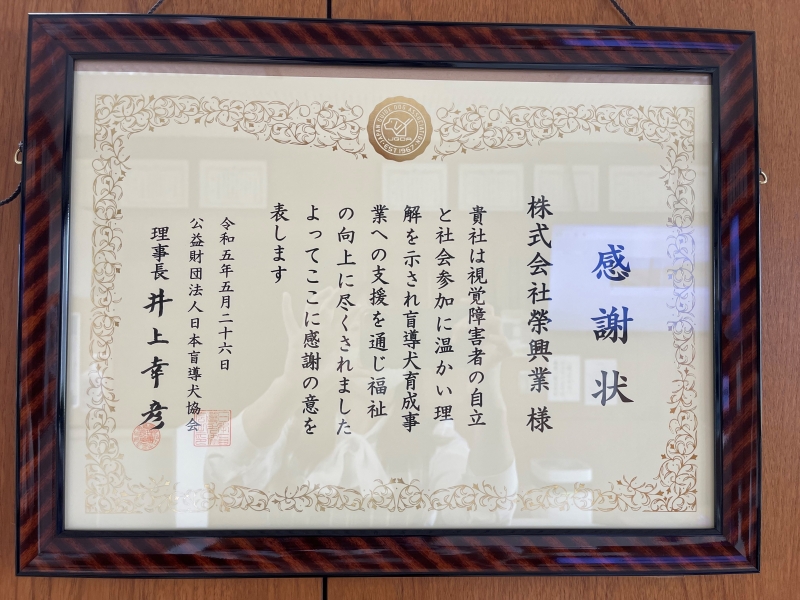 感謝状
株式会社榮興業 様
貴社は視覚障害者の自立
と社会参加に温かい理
解を示され盲導犬育成事
業への支援を通じ福祉
の向上に尽くされました
よってここに感謝の意を
表します
令和五年五月二十六日
公益財団法人日本盲導犬協会
理事長 井上幸彦